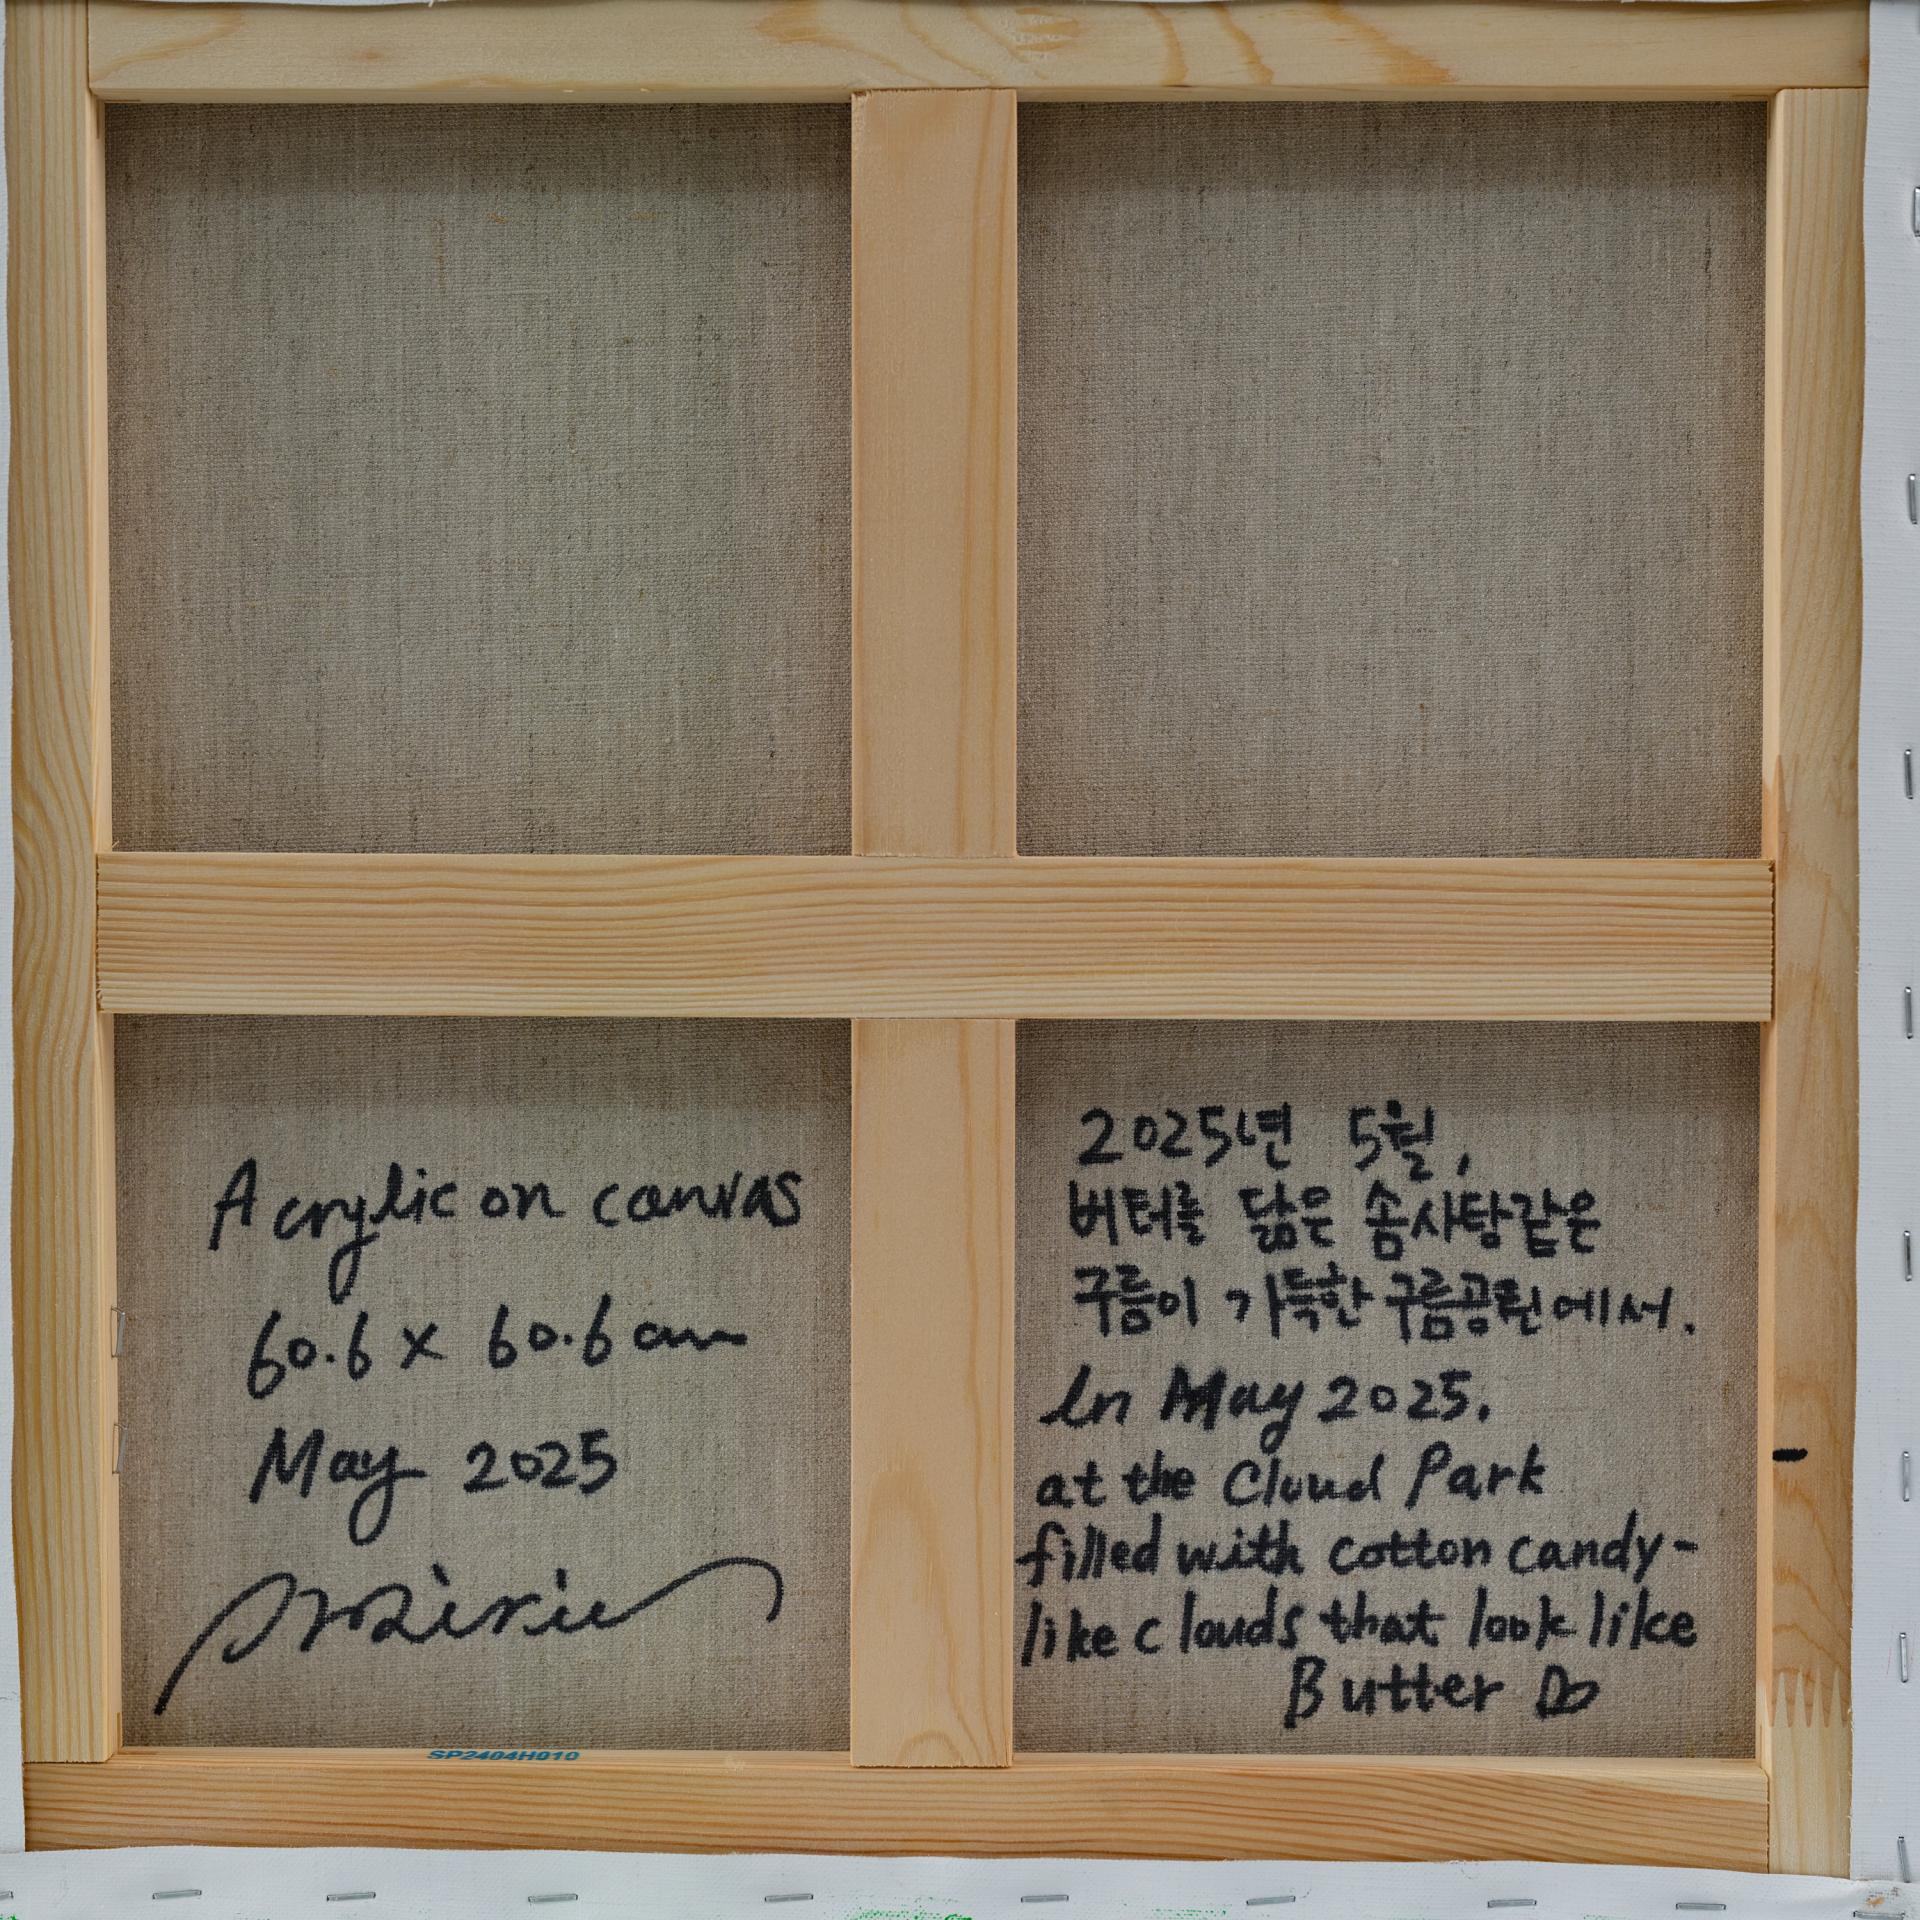 Acrylic on canvas
60.6 x 60.6 cm
May 2025
2025년 5월,
버터를 닮은 솜사탕같은
구름이 가득한 구름공원에서.
In May 2025.
at the Cloud Park
filled with cotton candy-
like clouds that look like
Butter
SP2404H010